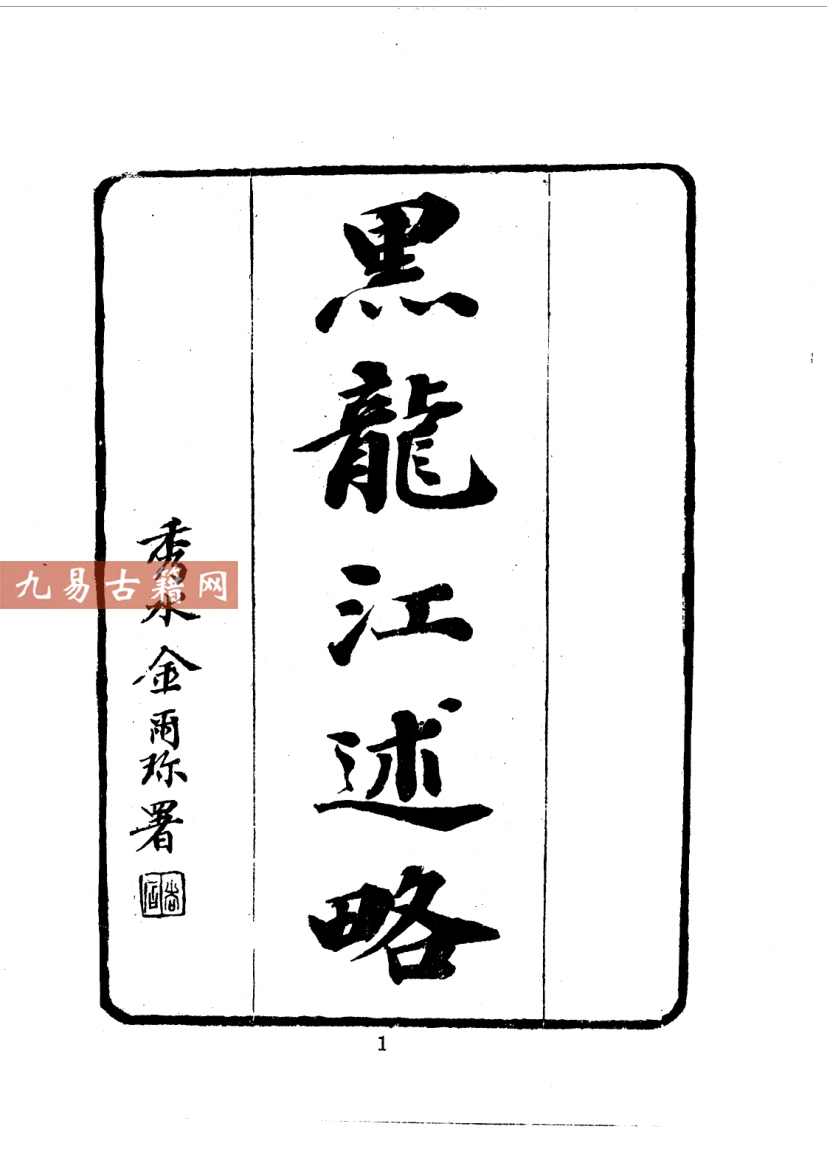 黑龍江述略
秀水金爾珍署
九易古籍网
1